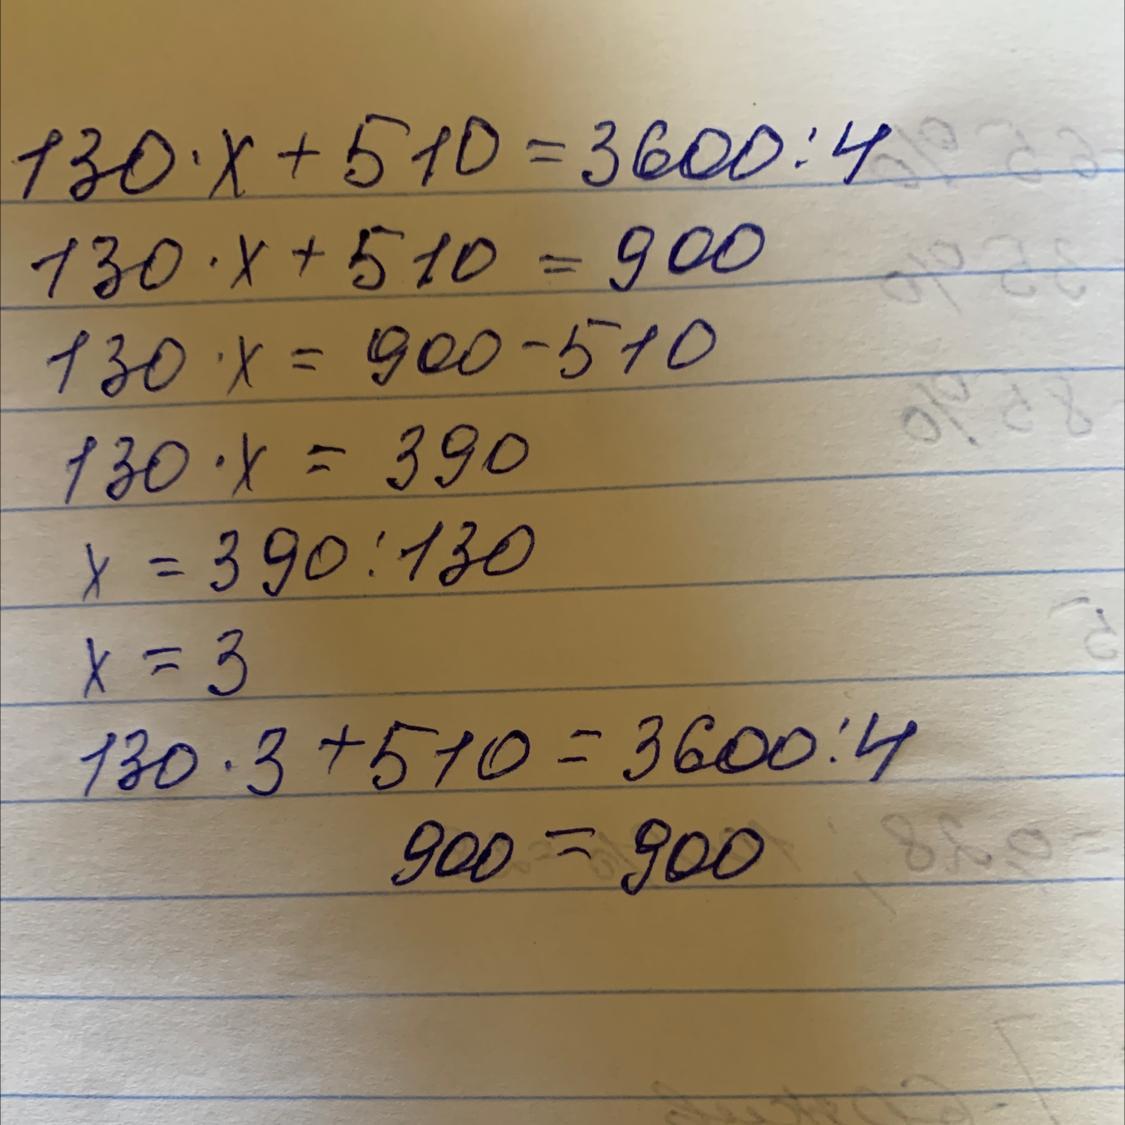 130·x+510=3600:4
130·x+510=900
130·x=900-510
130·x=390
x=390:130
x=3
130·3+510=3600:4
900=900